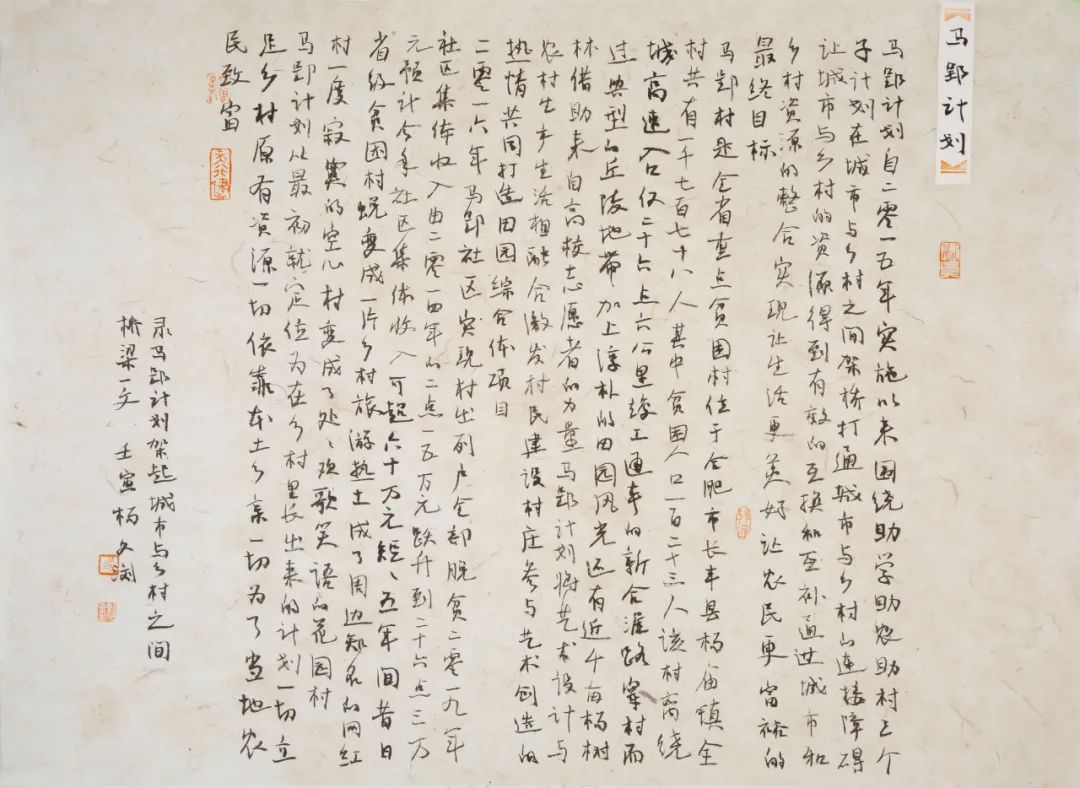 马郢计划
马郢计划自二零一五年实施以来围绕助学助农助村三个
子计划在城市与乡村之间架桥打通城市与乡村的连接障碍
让城市与乡村的资源得到有效的互换和互补通过城市和
乡村资源的整合实现让生活更美好让农民更富裕的
最终目标
马郢村是全省重点贫困村位于合肥市长丰县杨庙镇全
村共有一千七百七十八人其中贫困人口一百二十三人该村离绕
城高速入口仅二十六点六公里竣工通车的新合淮路穿村而
过典型的丘陵地带加上淳朴的田园风光还有近千亩杨树
林借助来自高校志愿者的力量马郢计划将艺术设计与
农村生产生活相融合激发村民建设村庄参与艺术创造的
热情共同打造田园综合体项目
二零一六年马郢社区实现村出列户全部脱贫二零一九年
社区集体收入由二零一四年的二点一五万元跃升到二十六点三万
元预计今年社区集体收入可超六十万元短短五年间昔日
省级贫困村蜕变成一片乡村旅游热土成了周边知名的网红
村一度寂寞的空心村变成了处处欢歌笑语的花园村
马郢计划从最初就定位为在乡村里长出来的计划一切立
足乡村原有资源一切依靠本土乡亲一切为了当地农
民致富
录马郢计划架起城市与乡村之间
桥梁一文 壬寅柄文澍